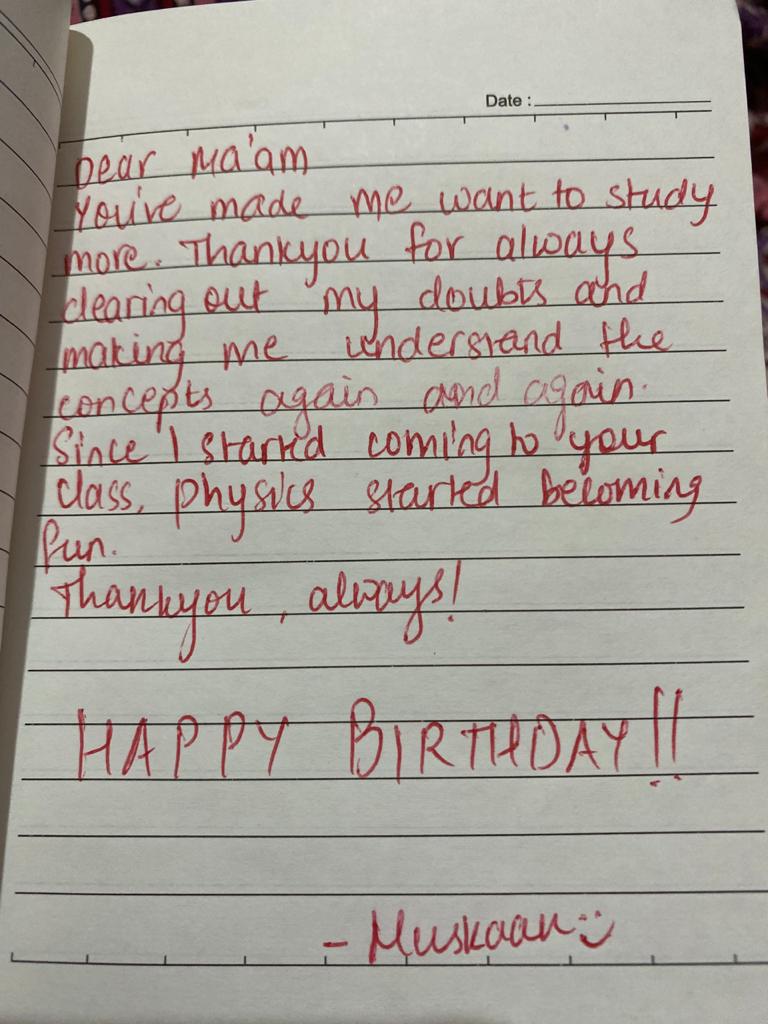 Date :
Dear Ma'am
You've made me want to study
more. Thankyou for always
clearing out my doubts and
making me understand the
concepts again and again.
Since I started coming to your
class, physics started becoming
fun.
Thankyou, always!
HAPPY BIRTHDAY!!
- Muskaan :)